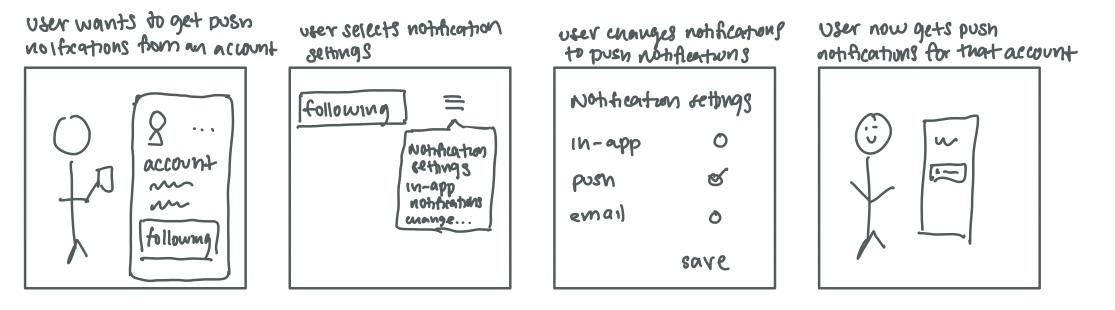 user wants to get push
notifications from an account
...
account
following
user selects notification
settings
following
Notification
settings
in-app
notifications
change...
user changes notifications
to push notifications
Notification settings
in-app
push
email
save
User now gets push
notifications for that account